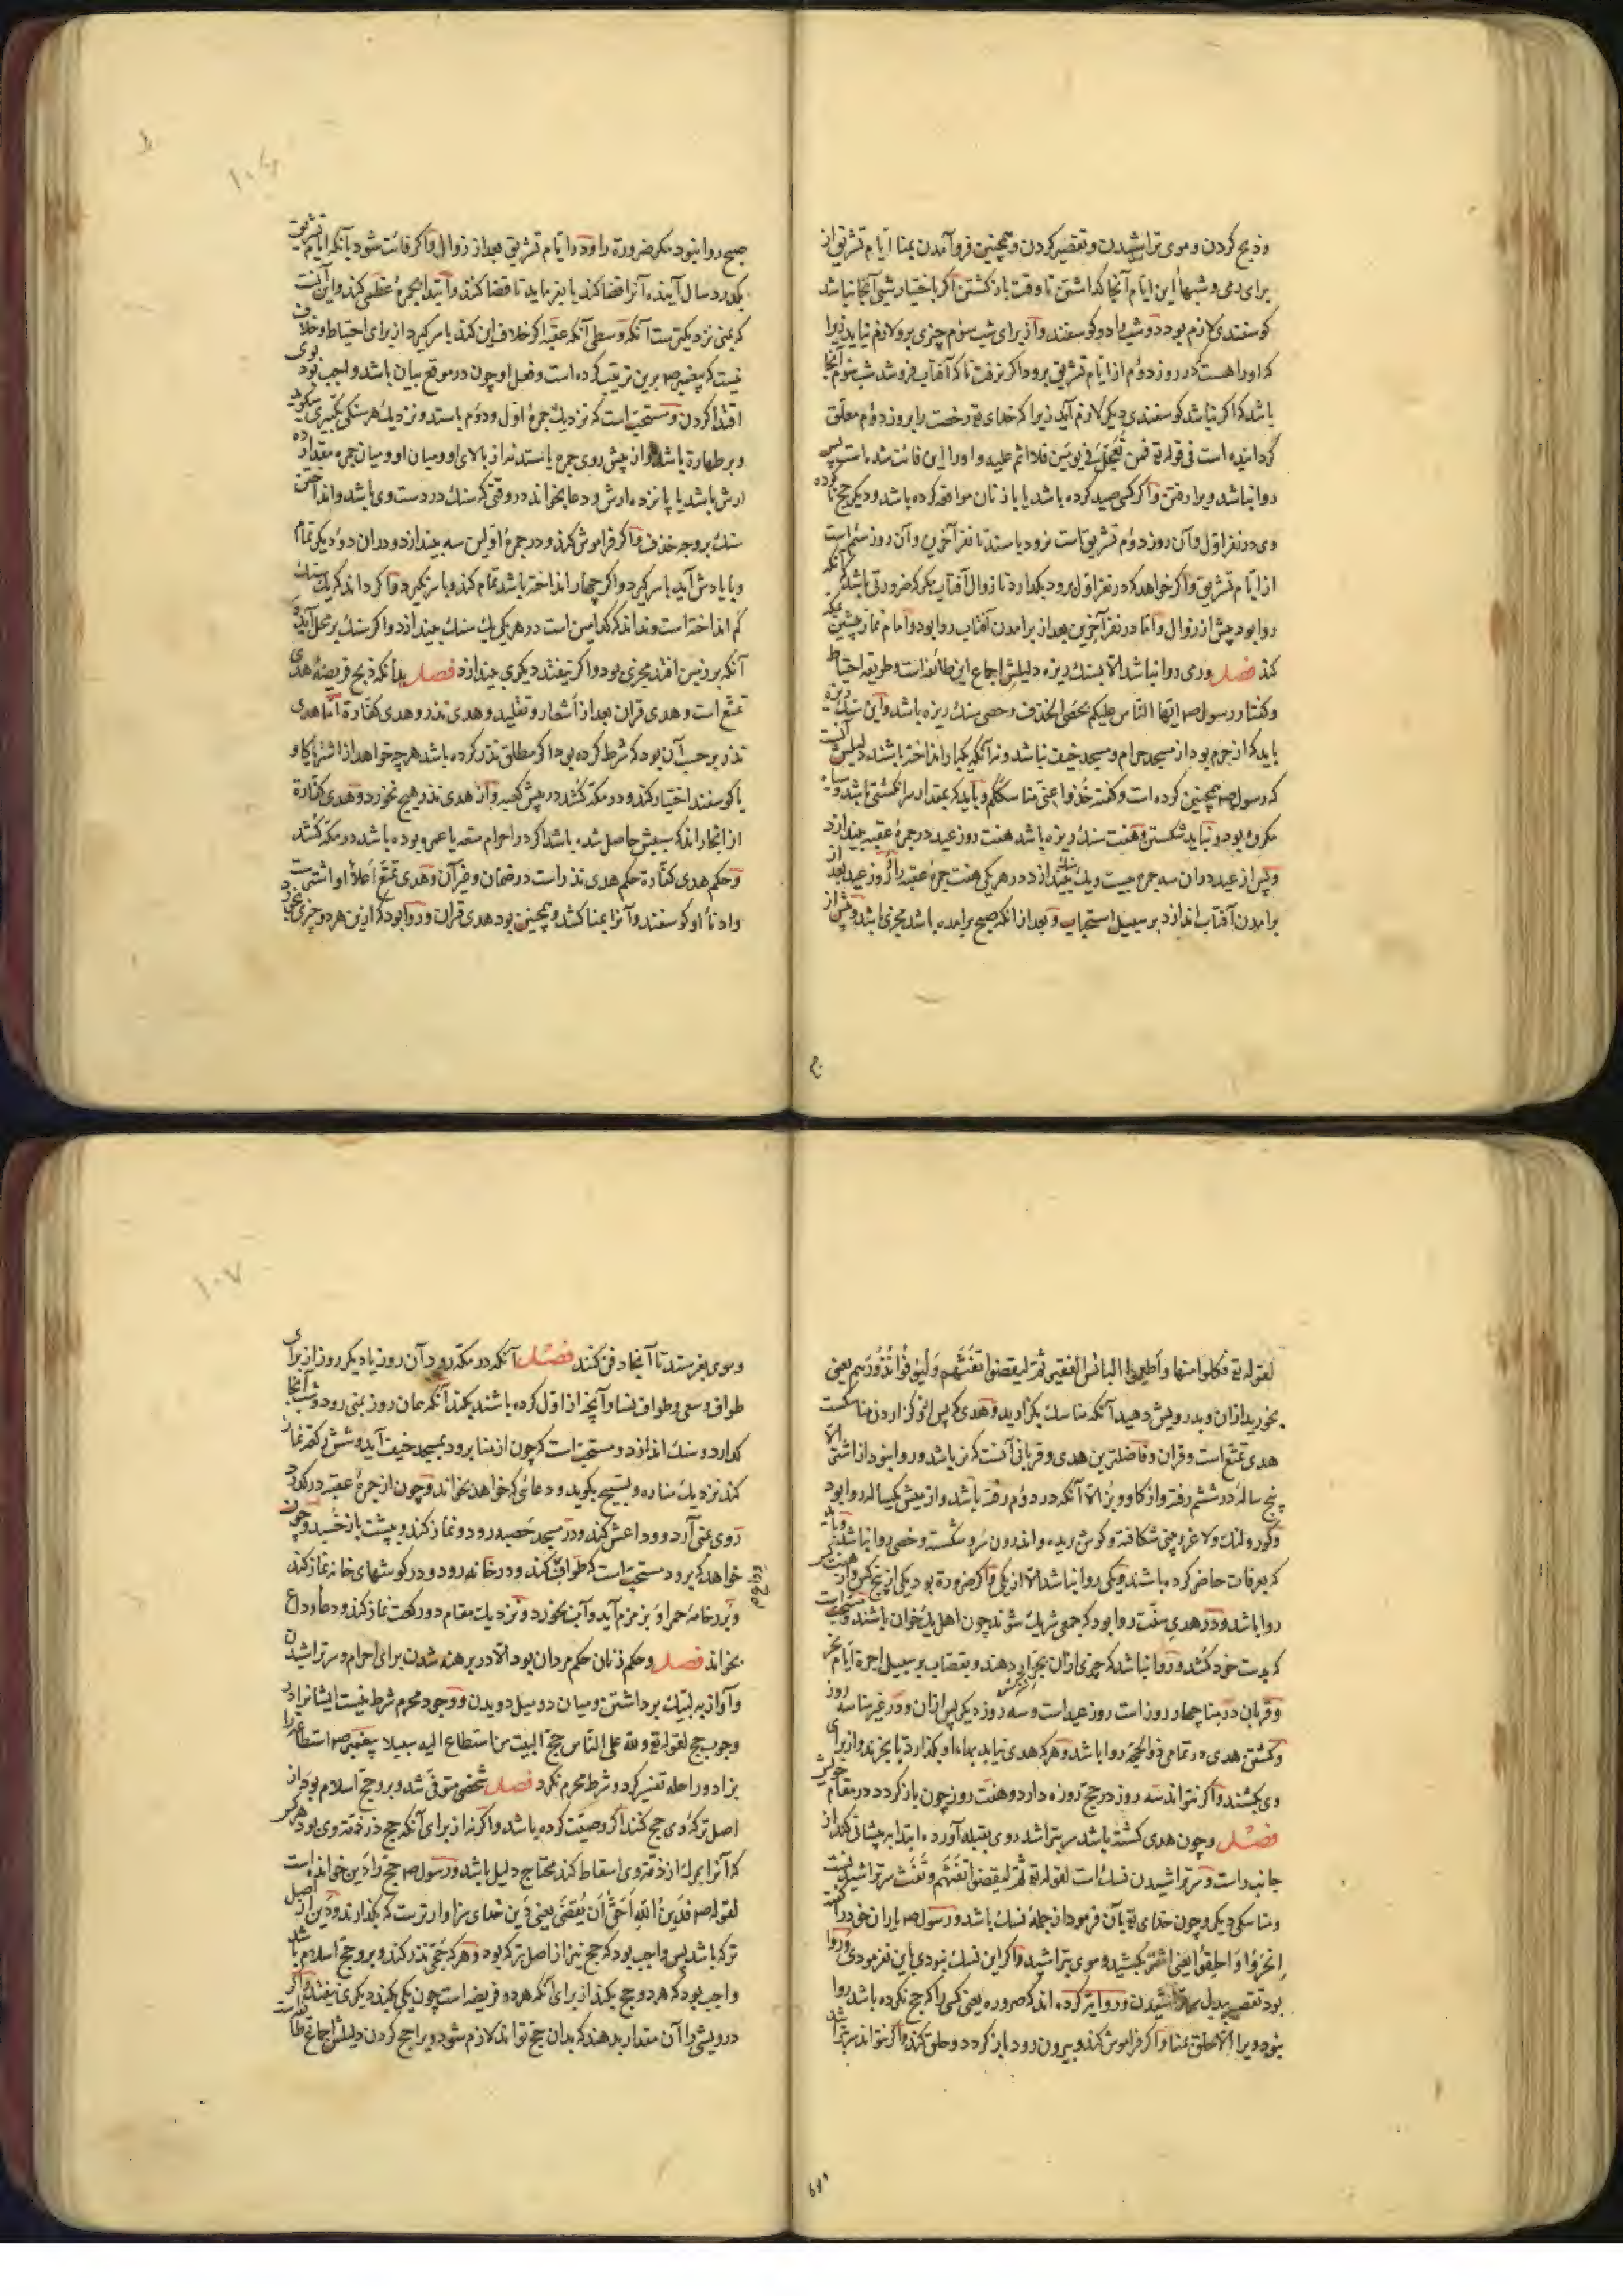 وذبح کردن وموی تراشیدن وتقصیر کردن وهمچنین فروآمدن بمنا ایام تشریق از
برای رمی وشبها این ایام آنجا گذاشتن تا وقت بازگشتن اگر باختیار شبی آنجا نباشد
گوسفندی لازم بود دو شب را دو گوسفند واز برای شب سوم چیزی برو لازم نیاید زیرا
که اورا هست که در روز دوم از ایام تشریق برود اگر نرفت تا که آفتاب فروشد شب سوم آنجا
باشد که اگر نباشد گوسفندی دیگر لازم آید زیرا که خدای تع رخصت را بروز دوم معلق
گردانیده است فی قوله تع فمن تعجل فی یومین فلا اثم علیه واورا این فائت شده است پس
روا نباشد ویرا رفتن واگر کسی صید کرده باشد یا با زنان مواقعه کرده باشد ودیگر حج نا کرده
وی در نفر اول وآن روز دوم تشریق است نرود باستد تا نفر آخرین وآن روز سیم است
از ایام تشریق واگر خواهد که در نفر اول برود بگذارد تا زوال آفتاب مگر که ضرورتی باشد که آنکه
روا بود پیش از زوال واما در نفر آخرین بعد از برامدن آفتاب روا بود واما م نماز پیشین بمکه
کند فصل ورمی روا نباشد الا بسنک ریزه دلیلش اجماع این طائفه است وطریقه احتیاط
وگفتار رسول صه ایها الناس علیکم بحصی الخذف وحصی سنک ریزه باشد واین سنک ریزه
باید که از حرم بود از مسجد حرام ومسجد خیف نباشد ونه آنکه یکبار انداخته باشند دلیلش آنست
که رسول صه همچنین کرده است وگفته خذوا عنی مناسککم وباید که بمقدار سر انگشتی باشد وسیاه
مکروه بود ونباید شکستن وهفت سنک ریزه باشد هفت روز عید در جمره عقبه بیندازد
وپس از عید در ان سه جمره بیست ویک سنک بیندازد در هر یکی هفت جمره عقبه را روز عید بعد از
برامدن آفتاب اندازد بر سبیل استحباب وبعد از انکه صبح برامده باشد مجزی باشد وپیش از
صبح روا نبود مگر ضرورة را ودر ایام تشریق بعد از زوال واگر فائت شود با آنکه ایام تشریق
بگذرد سال آینده آنرا قضا کند یا بفرماید تا قضا کنند وابتدا بجمره عظمی کند واین آنست
که بمنی نزدیکترست آنکه وسطی آنکه عقبه اگر خلاف این کند باسر گیرد از برای احتیاط وخلاف
نیست که پیغمبر صه برین ترتیب کرده است وفعل او چون در موقع بیان باشد واجب بود بوی
اقتدا کردن ومستحب است که نزدیک جمره اول ودوم باستد ونزدیک هر سنگی تکبیری بگوید
وبر طهارة باشد واز پیش روی جمره باستد نه از بالای او ومیان او ومیان جمره مقدار ده
ارش باشد یا پانزده ارش ودعا بخواند در وقتی که سنک در دست وی باشد وانداختن
سنک بروجه خذف واگر فراموش کند ودر جمره اولین سه بیندازد ودران دو دیگر تمام
وبا یادش آید باسر گیرد واگر چهار انداخته باشد تمام کند وباسر نگیرد واگر داند که یک سنک
کم انداخته است ونداند که کدامین است در هر یکی یک سنک بیندازد واگر سنک بر محل آید
آنکه بر زمین افتد مجزی بود واگر نیفتد دیگری بیندازد فصل بدانکه ذبح فریضه هدی
تمتع است وهدی قران بعد از اشعار وتقلید وهدی نذر وهدی کفارة اما هدی
نذر بر حسب آن بود که شرط کرده بود اگر مطلق نذر کرده باشد هر چه خواهد از اشتر یا گاو
یا گوسفند اختیار کند ودر مکه کشد در پیش کعبه واز هدی نذر هیچ نخورد وهدی کفارة
از اینجا راند که سببش حاصل شده باشد اگر در احرام متعه یا عمره بوده باشد در مکه کشد
وحکم هدی کفارة حکم هدی نذر است در ضمان وقرآن وهدی تمتع اعلای او اشتریست
وادنای او گوسفند وآنرا بمنا کشد وهمچنین بود هدی قران وروا بود که ازین هر دو چیزی بخورد
لقوله تع فکلوا منها واطعموا البائس الفقیر ثم لیقضوا تفثهم ولیوفوا نذورهم یعنی
بخورید ازان وبدرویش دهید آنکه مناسک بگزارید وهدی که پس از گزاردن مناسکست
هدی تمتع است وقران وفاضلترین هدی وقربانی آنست که نر باشد وروا نبود از اشتر الا
پنج ساله در ششم رفته واز گاو وبز الا آنکه در دوم رفته باشد واز میش یکساله روا بود
وکور ولنک ولاغر وبینی شکافته وگوش بریده واندرون سرو شکسته وخصی روا نباشد وباید
که بعرفات حاضر کرده باشند ویکی روا نباشد الا از یکی واگر ضرورة بود یکی از پنج کس واز هفت
روا باشد ودر هدی سنت روا بود که جمعی شریک شوند چون اهل یک خوان باشند ومستحب است
که بدست خود کشد وروا نباشد که چیزی ازان بجزار دهند وبقصاب بر سبیل اجرة ایام نحر
وقربان در منا چهار روز است روز عید است وسه روز دیگر پس ازان ودر غیر منا سه روز
وکشتن هدی در تمامی ذو الحجه روا باشد وهر که هدی نیابد بهاء او بگذارد تا بخرند واز برای
وی بکشند واگر نتواند سه روز در حج روزه دارد وهفت روز چون بازگردد در مقام خویش
فصل وچون هدی کشته باشد سر بتراشد روی بقبله آورده ابتدا به پیشانی کند از
جانب راست وسر تراشیدن نسک است لقوله تع ثم لیقضوا تفثهم وتفث سر تراشیدنست
ومناسکی دیگر وچون خدای تع بآن فرمود از جمله نسک باشد ورسول صه یاران خود را گفته
انحروا واحلقوا یعنی اشتر بکشید وموی بتراشید واگر این نسک نبودی باین نفرمودی وروا
بود تقصیر بدل سر تراشیدن وروایة کرده اند که صروره یعنی کسی را که حج نکرده باشد روا
نبود ویرا الا حلق بمنا واگر فراموش کند وبیرون رود بازگردد وحلق کند واگر نتواند سر بتراشد
وموی بفرستد تا آنجا دفن کنند فصل آنکه در مکه رود آن روز یا دیگر روز از برای
طواف وسعی وطواف نسا وآنچه از اول کرده باشند بکند آنکه همان روز بمنی رود وشب آنجا
گذارد وسنک اندازد ومستحب است که چون از منا برود بمسجد خیف آید وشش رکعة نماز
کند نزدیک مناره وتسبیح بگوید ودعائی که خواهد بخواند وچون از جمره عقبه درگذرد
روی بمنی آرد ووداعش کند ودر مسجد حصبه رود ونماز کند وبپشت باز خسبد وچون
خواهد که برود مستحب است که طواف کند ودر خانه رود ودر گوشهای خانه نماز کند
وبر رخامه حمرا وبزمزم آید وآب بخورد ونزدیک مقام دو رکعت نماز کند ودعاء وداع
بخواند فصل وحکم زنان حکم مردان بود الا در برهنه شدن برای احرام وسر تراشیدن
وآواز به لبیک برداشتن ومیان دو میل دویدن ووجود محرم شرط نیست ایشانرا در
وجوب حج لقوله تع ولله علی الناس حج البیت من استطاع الیه سبیلا پیغمبر صه استطاعة را
بزاد وراحله تفسیر کرد وشرط محرم نکرد فصل شخصی متوفی شد وبرو حج اسلام بود از
اصل ترکه وی حج کنند اگر وصیت کرده باشد واگر نه از برای آنکه حج در ذمه وی بود هر کس
که آنرا بمرک از ذمه وی اسقاط کند محتاج دلیل باشد ورسول صه حج را دین خوانده است
لقوله صه فدین الله احق ان یقضی یعنی دین خدای سزاوارترست که بگذارند ودین از اصل
ترکه باشد پس واجب بود که حج نیز از اصل ترکه بود وهر که حجی نذر کند وبرو حج اسلام باشد
واجب بود که هر دو حج بکند از برای آنکه هر دو فریضه است چون یکی بکند دیگری نیفتد واگر
درویشی را آن مقدار بدهند که بدان حج تواند لازم شود ویرا حج کردن دلیلش اجماع طائفه است
۱۰۷